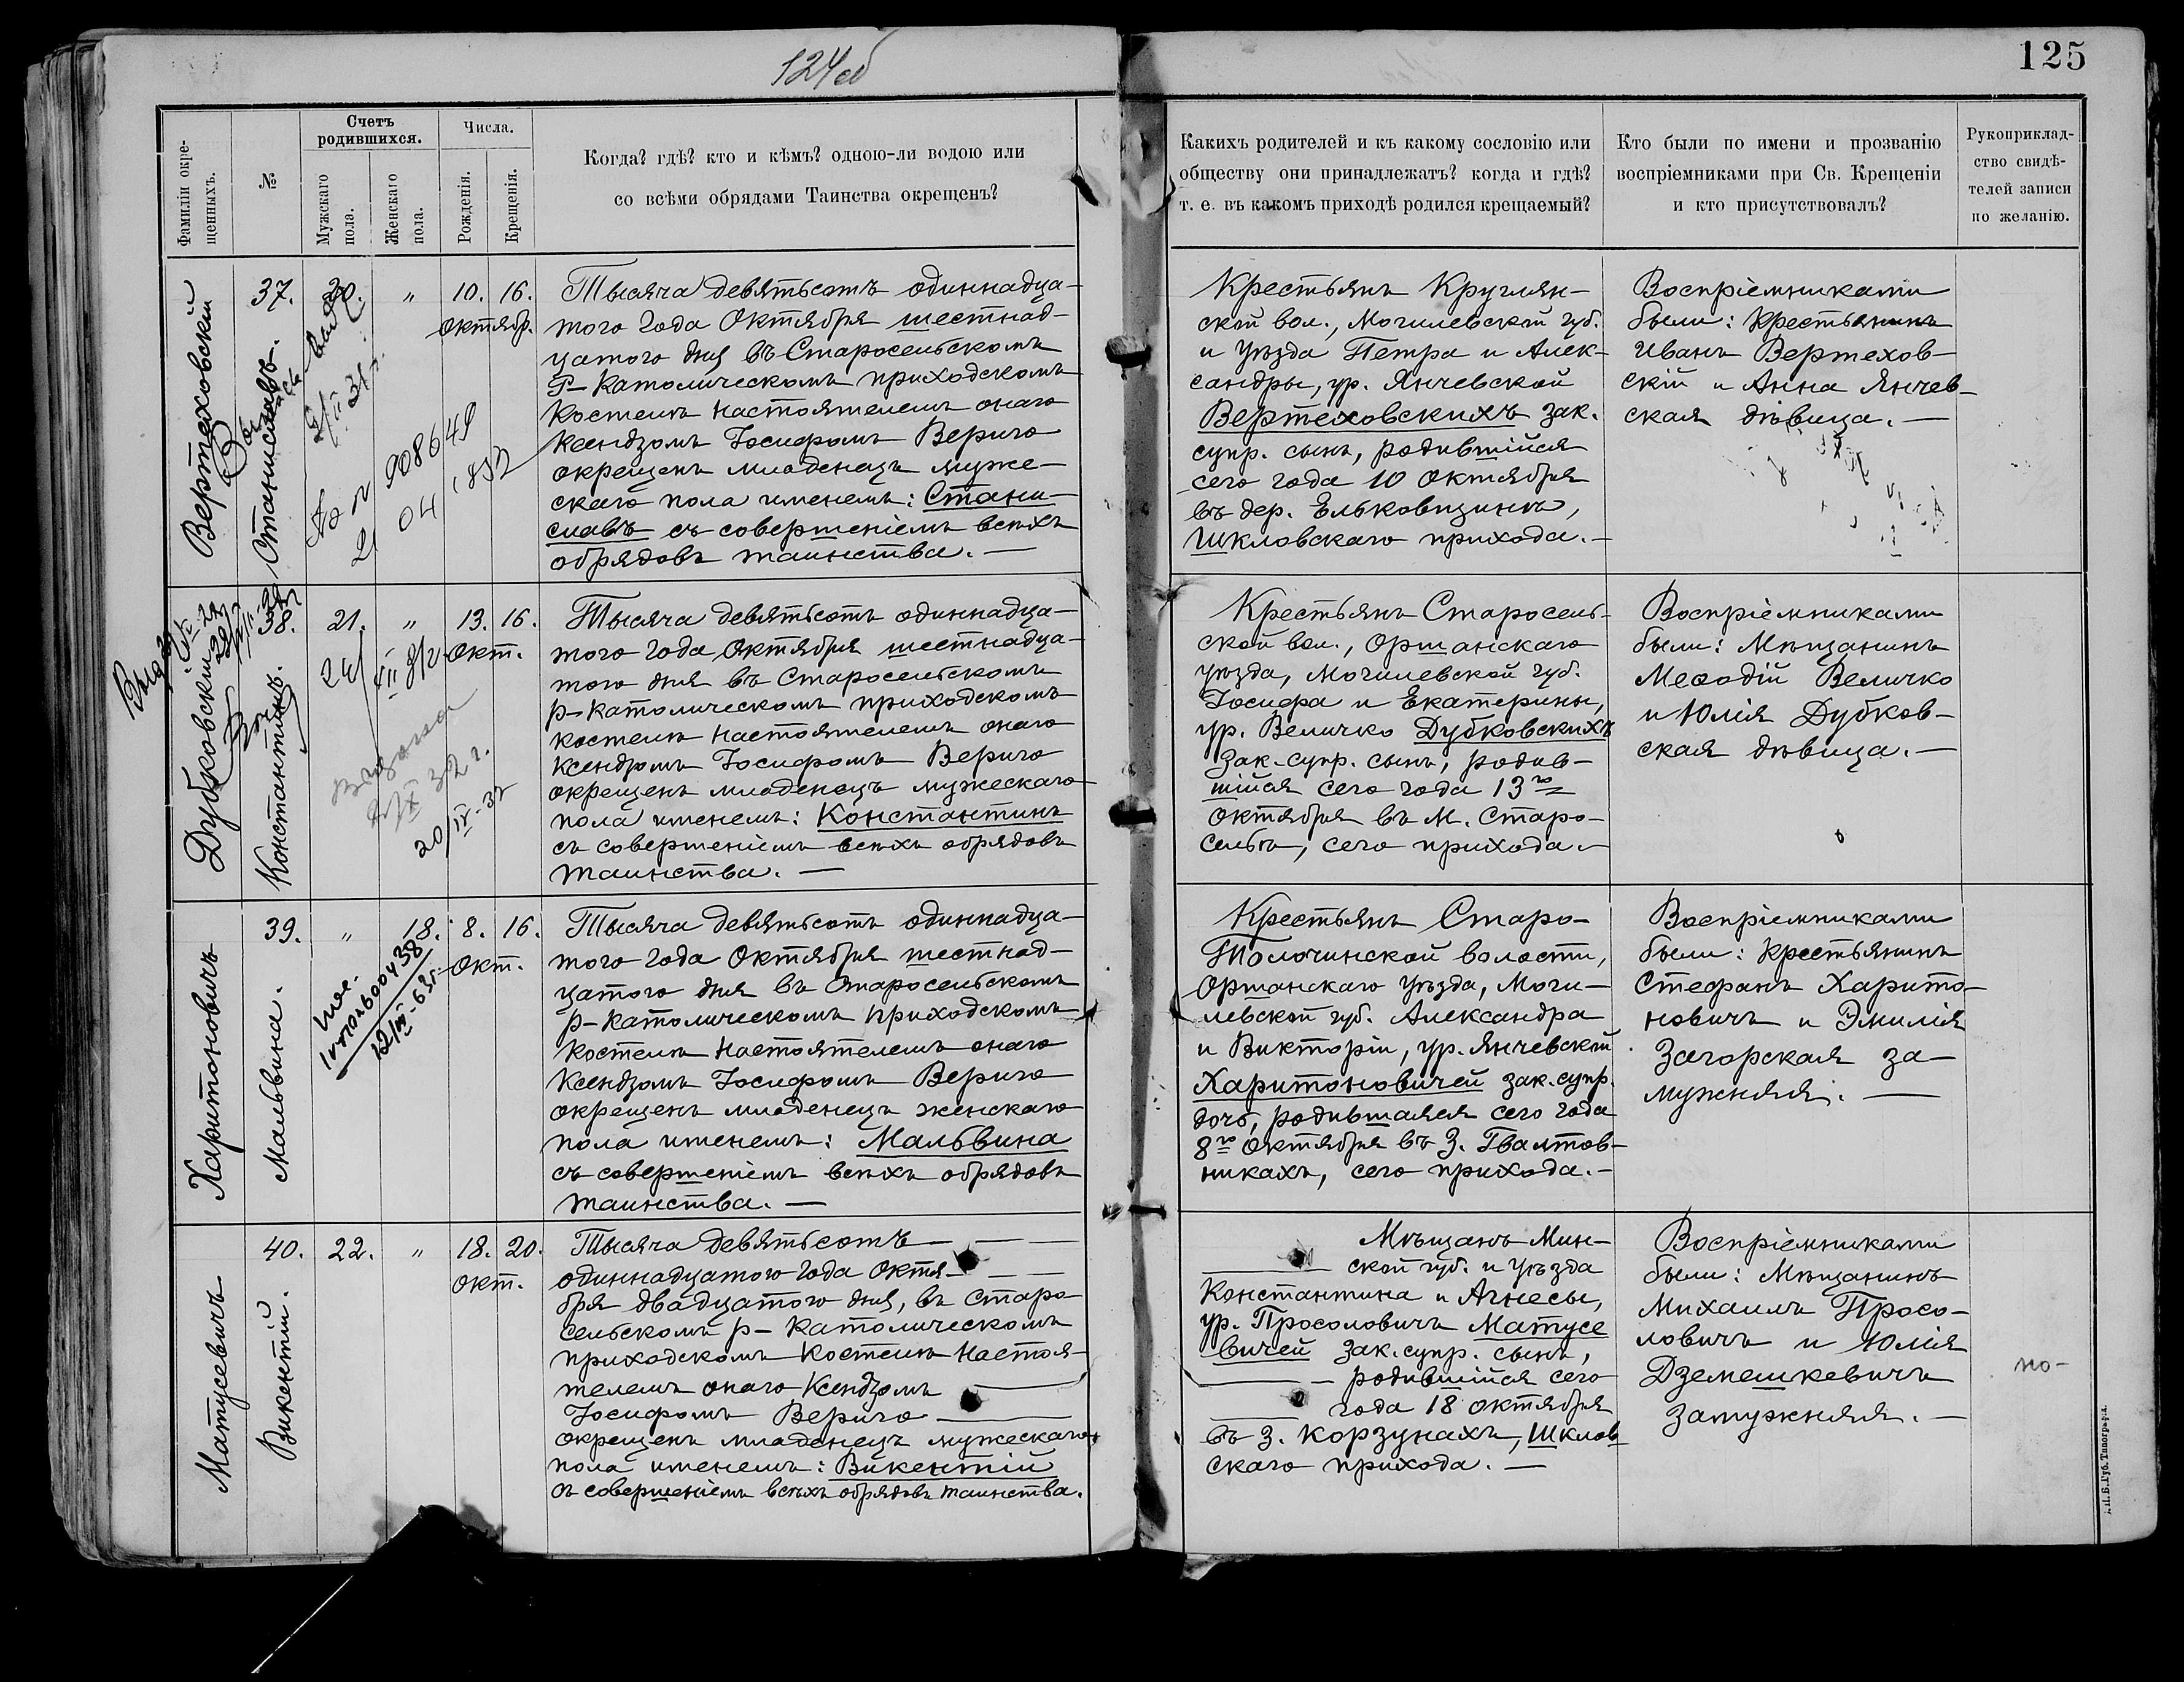 124об
125
Фамиліи окре-
щенныхъ.
№
Счетъ
родившихся.
Мужскаго
пола.
Женскаго
пола.
Числа.
Рожденія.
Крещенія.
Когда? гдѣ? кто и кѣмъ? одною-ли водою или
со всѣми обрядами Таинства окрещенъ?
Какихъ родителей и къ какому сословію или
обществу они принадлежатъ? когда и гдѣ?
т. е. въ какомъ приходѣ родился крещаемый?
Кто были по имени и прозванію
воспріемниками при Св. Крещеніи
и кто присутствовалъ?
Рукоприклад-
ство свидѣ-
телей записи
по желанію.
Вертеховскій
Станиславъ.
37.
20.
"
10. 16.
Октябр.
Тысяча девятьсотъ одиннадца-
того года Октября шестнад-
цатого дня въ Старосельскомъ
Р-Католическомъ приходскомъ
Костелѣ Настоятелемъ онаго
Ксендзомъ Іосифомъ Верыго
окрещенъ младенецъ муже-
скаго пола именемъ: Стани-
славъ съ совершеніемъ всѣхъ
обрядовъ таинства. —
Крестьянъ Круглян-
ской вол., Могилевской губ.
и уѣзда Петра и Алек-
сандры, ур. Янчевской
Вертеховскихъ зак.
супр. сынъ, родившійся
сего года 10 Октября
въ дер. Ельковщинѣ,
Шкловскаго прихода. —
Воспріемниками
были: Крестьянинъ
Иванъ Вертехов-
скій и Анна Янчев-
ская дѣвица. —
Дубковскій
Константинъ.
38.
21.
"
13. 16.
Окт.
20/IV-32
Тысяча девятьсотъ одиннадца-
того года Октября шестнадца-
того дня въ Старосельскомъ
р-Католическомъ приходскомъ
Костелѣ Настоятелемъ онаго
Ксендзомъ Іосифомъ Верыго
окрещенъ младенецъ мужескаго
пола именемъ: Константинъ
съ совершеніемъ всѣхъ обрядовъ
таинства. —
Крестьянъ Старосель-
ской вол., Оршанскаго
уѣзда, Могилевской губ.
Іосифа и Екатерины,
ур. Величко Дубковскихъ
зак. супр. сынъ, родив-
шійся сего года 13го
Октября въ м. Старо-
сельѣ, сего прихода. —
Воспріемниками
были: Мѣщанинъ
Меѳодій Величко
и Юлія Дубков-
ская дѣвица. —
Харитоновичъ
Мальвина.
39.
"
18.
8. 16.
Окт.
Тысяча девятьсотъ одиннадца-
того года Октября шестнад-
цатого дня въ Старосельскомъ
р-Католическомъ приходскомъ
Костелѣ Настоятелемъ онаго
Ксендзомъ Іосифомъ Верыго
окрещенъ младенецъ женскаго
пола именемъ: Мальвина
съ совершеніемъ всѣхъ обрядовъ
таинства. —
Крестьянъ Старо-
Толочинской волости,
Оршанскаго уѣзда, Моги-
левской губ. Александра
и Викторіи, ур. Янчевской
Харитоновичей зак. супр.
дочь, родившаяся сего года
8го Октября въ З. Гвалтов-
никахъ, сего прихода. —
Воспріемниками
были: Крестьянинъ
Стефанъ Харито-
новичъ и Эмилія
Загорская за-
мужняя. —
Матусевичъ
Викентій.
40.
22.
"
18. 20.
Окт.
Тысяча девятьсотъ — — —
одиннадцатого года Октя- — —
бря двадцатого дня, въ Старо-
сельскомъ р-Католическомъ
приходскомъ Костелѣ Настоя-
телемъ онаго Ксендзомъ —
Іосифомъ Верыго —
окрещенъ младенецъ мужескаго
пола именемъ: Викентій
съ совершеніемъ всѣхъ обрядовъ таинства.
Мѣщанъ Мин-
— ской губ. и уѣзда
Константина и Агнесы,
ур. Просоловичъ Матусе
вичей зак. супр. сынъ,
— родившійся сего
— года 18 Октября
въ З. Корзунахъ, Шклов
скаго прихода. —
Воспріемниками
были: Мѣщанинъ
Михаилъ Просо-
ловичъ и Юлія
Дземешкевичъ
замужняя. —